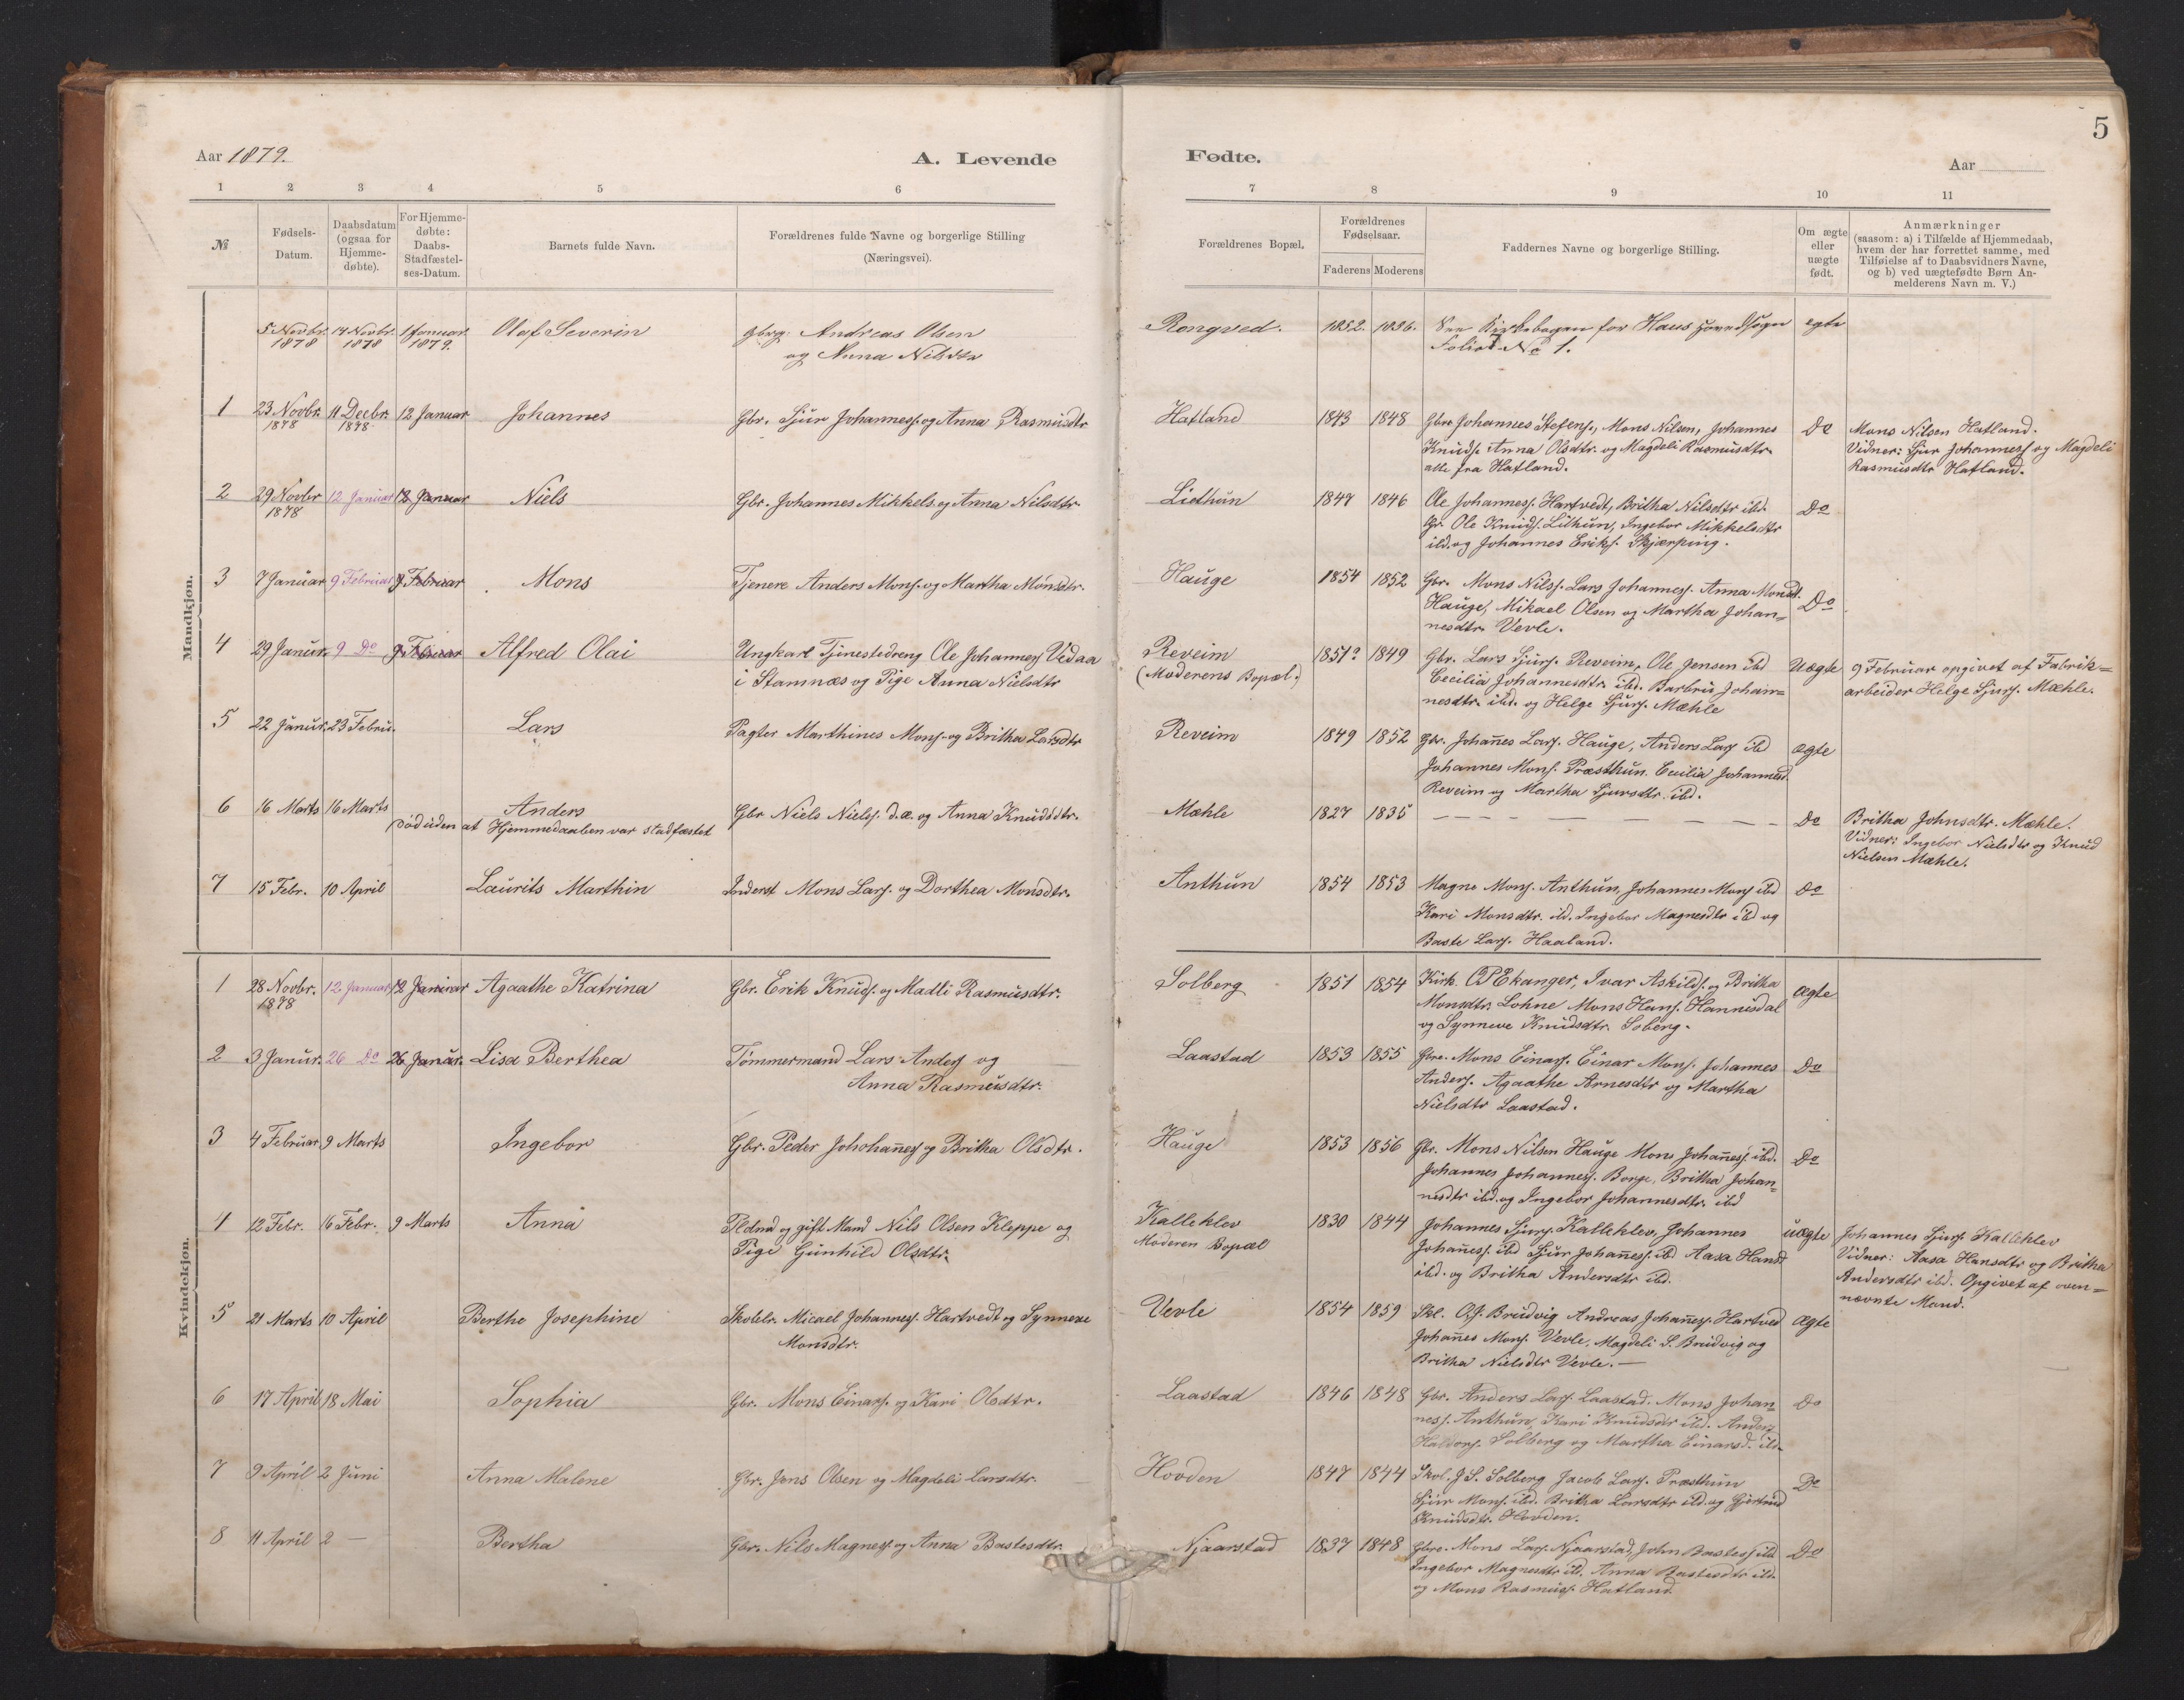 5
Aar 1879.
A. Levende
Fødte.
Aar
1 2 3 4 5 6 7 8 9 10 11
№
Fødsels-
Datum.
Daabsdatum
(ogsaa for
Hjemme-
døbte).
For Hjemme-
døbte:
Daabs-
Stadfæstel-
ses-Datum.
Barnets fulde Navn.
Forældrenes fulde Navne og borgerlige Stilling
(Næringsvei).
Forældrenes Bopæl.
Forældrenes
Fødselsaar.
Faderens Moderens
Faddernes Navne og borgerlige Stilling.
Om ægte
eller
uægte
født.
Anmærkninger
(saasom: a) i Tilfælde af Hjemmedaab,
hvem der har forrettet samme, med
Tilføielse af to Daabsvidners Navne,
og b) ved uægtefødte Børn An-
melderens Navn m. V.)
Mandkjøn.
5 Novbr. 14 Novbr. 1 Januar. Olaf Severin gbrg. Andreas Olsen Rongved. 1852. 1836. See Kirkebogen for Haus Hovedsogn egte
1878 1878 1879. og Anna Nilsdtr Folio 1 No 1.
1 23 Novbr. 11 Decbr. 12 Januar Johannes Gbr. Sjur Johannesf. og Anna Rasmusdtr Hatland 1843 1848 Gbre Johannes Stefens., Mons Nilsen, Johannes Do Mons Nilsen Hatland.
1878 1878 Knudsf. Anna Olsdtr. og Magdeli Rasmusdtr. Vidner: Sjur Johannesf og Magdeli
alle fra Hatland. Rasmusdtr Hatland.
2 29 Novbr 12 Januar 12 Januar Niels Gbr. Johannes Mikkels. og Anna Nilsdtr. Liethun 1847 1846 Ole Johannesf. Hartvedt, Britha Nilsdtr ibd. Do
1878 Gr. Ole Knudsf. Lithun, Ingebor Mikkelsdtr
ibd. og Johannes Eriksf. Skjærping.
3 7 Januar 9 Februar 9 Februar Mons Tjenere Anders Monsf. og Martha Monsdtr. Hauge 1854 1852 Gbr. Mons Nilsf. Lars Johannesf. Anna Monsdt. Do
Hauge, Mikael Olsen og Martha Johan=
nesdtr Vevle.
4 29 Janur. 9 Do 9 Februar Alfred Olai Ungkarl Tjenestedreng Ole Johannesf Vedaa Reveim 1851? 1849 Gbr. Lars Sjursf. Reveim, Ole Jensen ibd Uægte 9 Februar opgivet af Fabrik=
i Stamnæs og Pige Anna Nielsdtr (Moderens Bopæl.) Cecilia Johannesdtr. ibd. Barbru Johan= arbeider Helge Sjursf. Mæhle.
nesdtr. ibd. og Helge Sjursf. Mæhle
5 22 Janur. 23 Febru. Lars Pagter Marthines Monsf. og Britha Larsdtr Reveim 1849 1852 Gbr. Johanes Larsf. Hauge, Anders Larsf ibd ægte
Johannes Monsf. Præsthun. Cecilia Johannesd.
Reveim og Martha Sjursdtr. ibd.
6 16 Marts 16 Marts Anders Gbr Niels Nielsf. d.æ. og Anna Knudsdtr. Mæhle 1827 1835 Do Britha Johnsdtr. Mæhle.
Död uden at Hjemmedaaben var stadfæstet Vidner: Ingebor Nielsdtr og Knud
Nielsen Mæhle.
7 15 Febr. 10 April Laurits Marthin Inderst Mons Larsf. og Dorthea Monsdtr. Anthun 1854 1853 Magne Monsf. Anthun, Johannes Monsf ibd Do
Kari Monsdtr. ibd. Ingebor Magnesdtr ibd og
Baste Larsf. Haaland.
Kvindekjøn.
1 28 Novbr. 12 Januar 12 Januar Agaathe Katrina Gbr. Erik Knudsf. og Madli Rasmusdtr. Solberg 1851 1854 Kirk. O P Ekanger, Ivar Askildsf. og Britha Ægte
1878 Monsdtr. Lohne Mons Hansf. Hannisdal
og Synneve Knudsdtr. Soberg.
2 3 Janur. 26 Do 26 Januar. Lisa Berthea Tömmermand Lars Andersf og Laastad 1853 1855 Gbre. Mons Einarsf. Einar Monsf. Johannes Do
Anna Rasmusdtr. Andersf. Agaathe Arnesdtr og Martha
Nielsdtr Laastad.
3 4 Februar 9 Marts Ingebor Gbr. Peder Johohanesf og Britha Olsdtr. Hauge 1853 1856 Gbr. Mons Nilsen Hauge Mons Johanesf. ibd. Do
Johannes Johannesf. Borge, Britha Johan=
nesdtr ibd. og Ingebor Johannesdtr. ibd
4 12 Febr. 16 Febr. 9 Marts Anna Fldmd og gift Mand Nils Olsen Kleppe og Kalleklev 1830 1844 Johannes Sjursf. Kalleklev, Johannes uægte Johannes Sjursf. Kalleklev
Pige Gunhild Olsdtr. Moderen Bopæl Johanesf. ibd Sjur Johanesf. ibd Aasa Hansd. Vidner: Aasa Hansdtr og Britha
ibd. og Britha Andersdtr ibd. Andersdtr ibd. Opgivet af oven=
nævnte Mand.
5 21 Marts 10 April Berthe Josephine Skolelr. Micael Johannesf. Hartvedt og Synneve Vevle 1854 1859 Skl. O.J. Brudvig Andreas Johanesf. Hartved Ægte
Monsdtr. Johanes Monsf. Vevle, Magdeli S. Brudvig og
Britha Nielsdtr Vevle.
6 17 April 18 Mai Sophia Gbr. Mons Einarsf. og Kari Olsdtr. Laastad 1846 1848 Gbr. Anders Larsf. Laastad. Mons Johan= Do
nesf. Anthun, Kari Knudsdtr ibd. Anders
Haldorsf. Solberg og Martha Einarsd. ibd.
7 9 April 2 Juni Anna Malene Gbr. Jens Olsen og Magdeli Larsdtr. Hovden 1847 1844 Skol. J S. Solberg Jacob Larsf. Præsthun Do
Sjur Monsf. ibd. Britha Larsdtr ibd. og Gjertrud
Knudsdtr. Hovden.
8 11 April 2 — Bertha Gbr. Nils Magnesf. og Anna Bastesdtr. Njaarstad 1837 1848 Gbre. Mons Larsf. Njaarstad, John Bastesf ibd Do
Ingebor Magnesdtr ibd. Anna Bastesdtr ibd.
og Mons Rasmusf. Hatland.